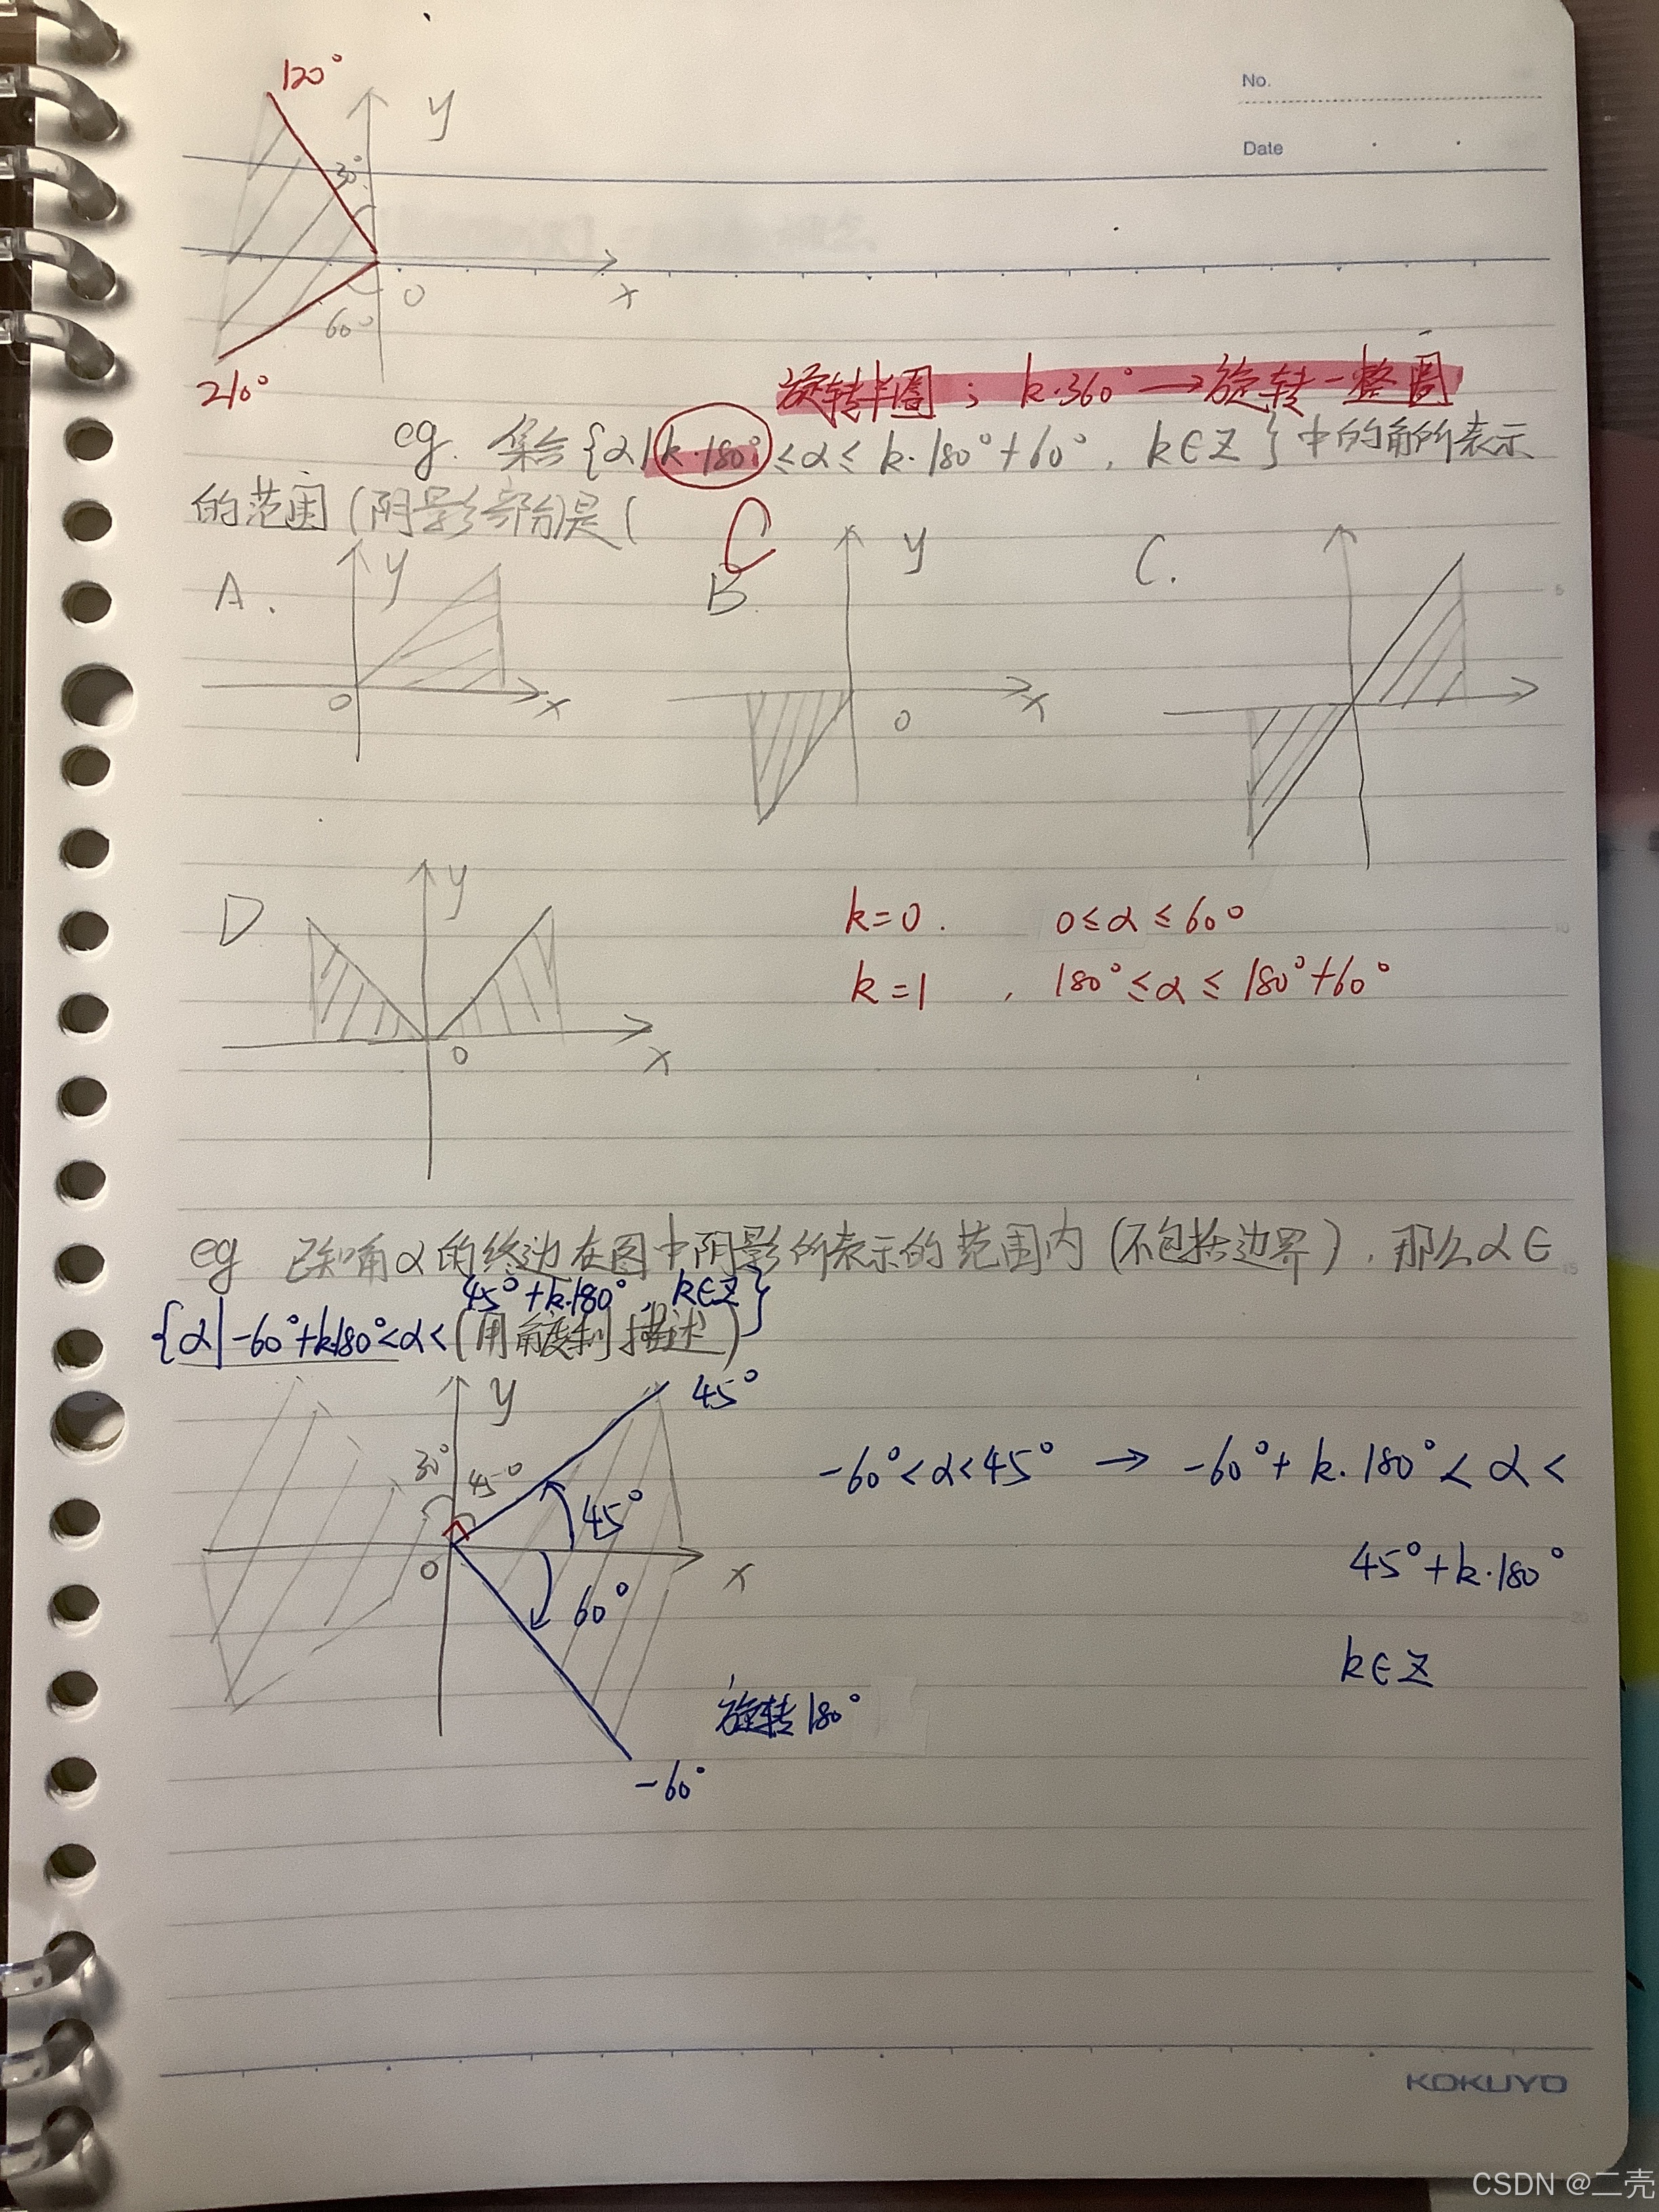 No.
Date
120°
y
30°
O
x
60°
210°
旋转半圈; k·360°→旋转一整圈
eg. 集合{α|k·180°≤α≤k·180°+60°, k∈Z}中的角所表示
的范围(阴影部分)是(
C
A.
y
O
x
B.
y
O
x
C.
D
y
O
x
k=0. 0≤α≤60°
k=1 , 180°≤α≤180°+60°
eg 已知角α的终边在图中阴影所表示的范围内(不包括边界), 那么α∈
45°+k·180°, k∈Z}
{α|-60°+k·180°<α<(用角度制描述)
y
45°
30°
45°
45°
O
x
60°
-60°
旋转180°
-60°<α<45° → -60°+k·180°<α<
45°+k·180°
k∈Z
KOKUYO
CSDN @二壳